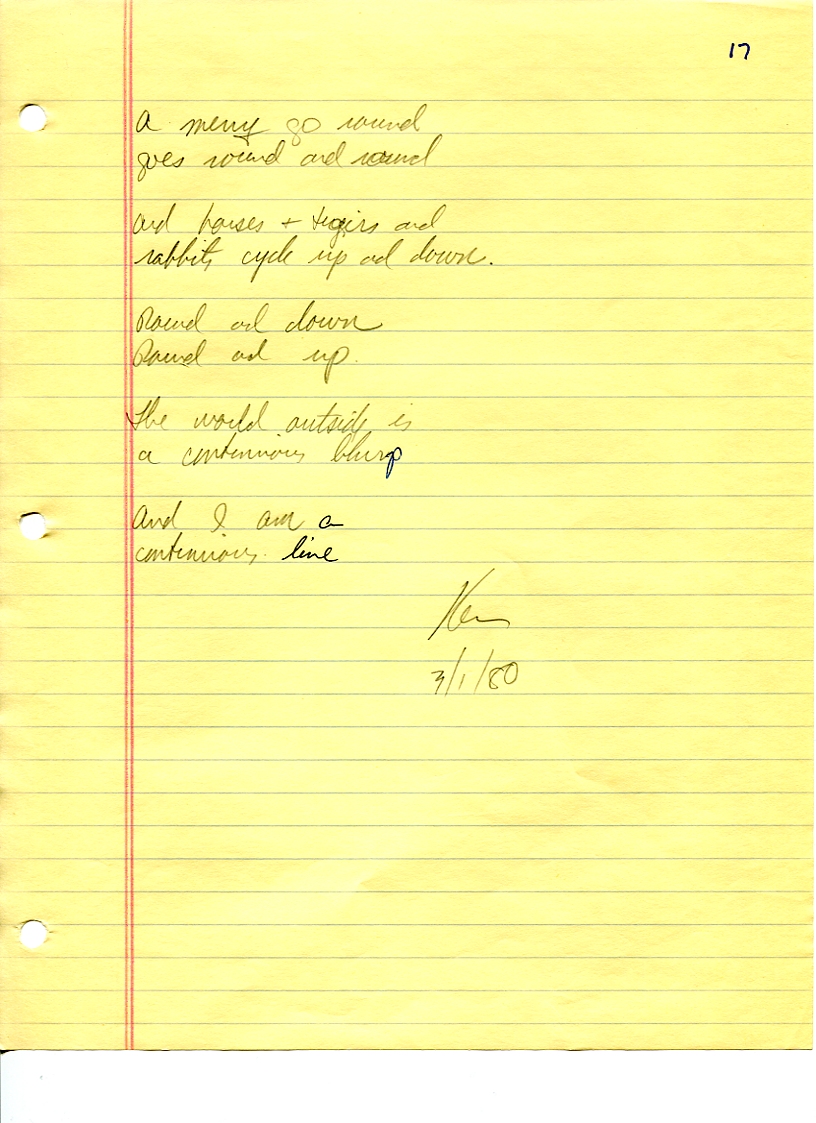 17
A merry go round
goes round and round
and horses + tigirs and
rabbits cycle up and down.
Round and down
Round and up.
The world outside is
a contenuious blurp
And I am a
contenuious line
Ken
3/1/80